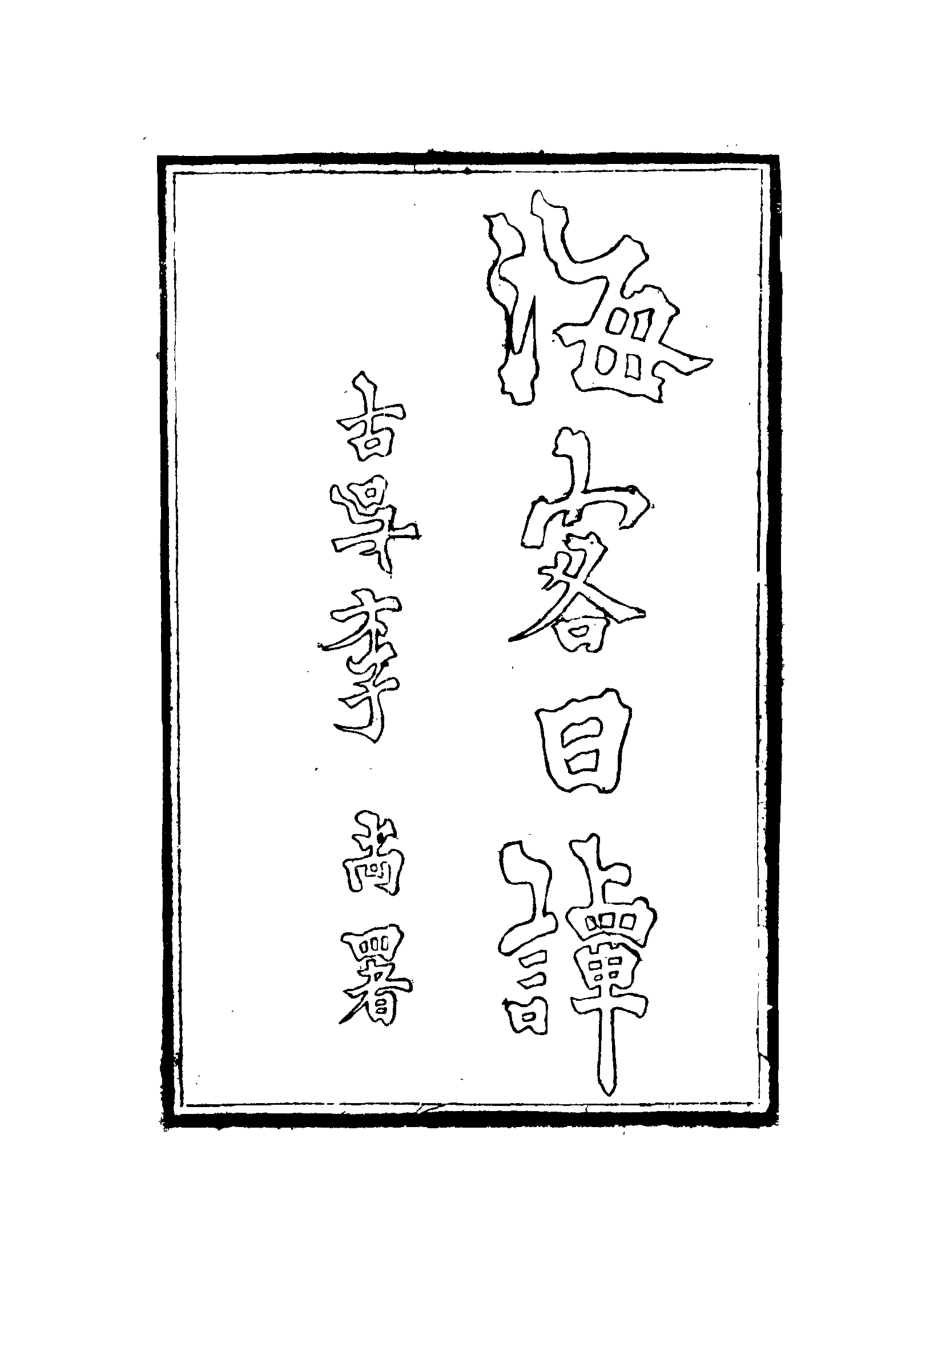 海客日譚
古㝵李尚署